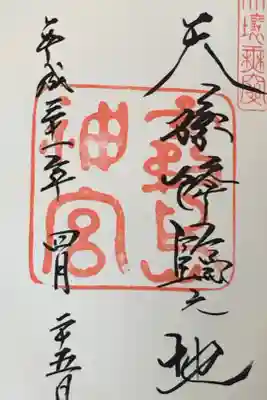 天壌無窮
天孫降臨之地
霧島
神宮
平成二十一年四月二十五日